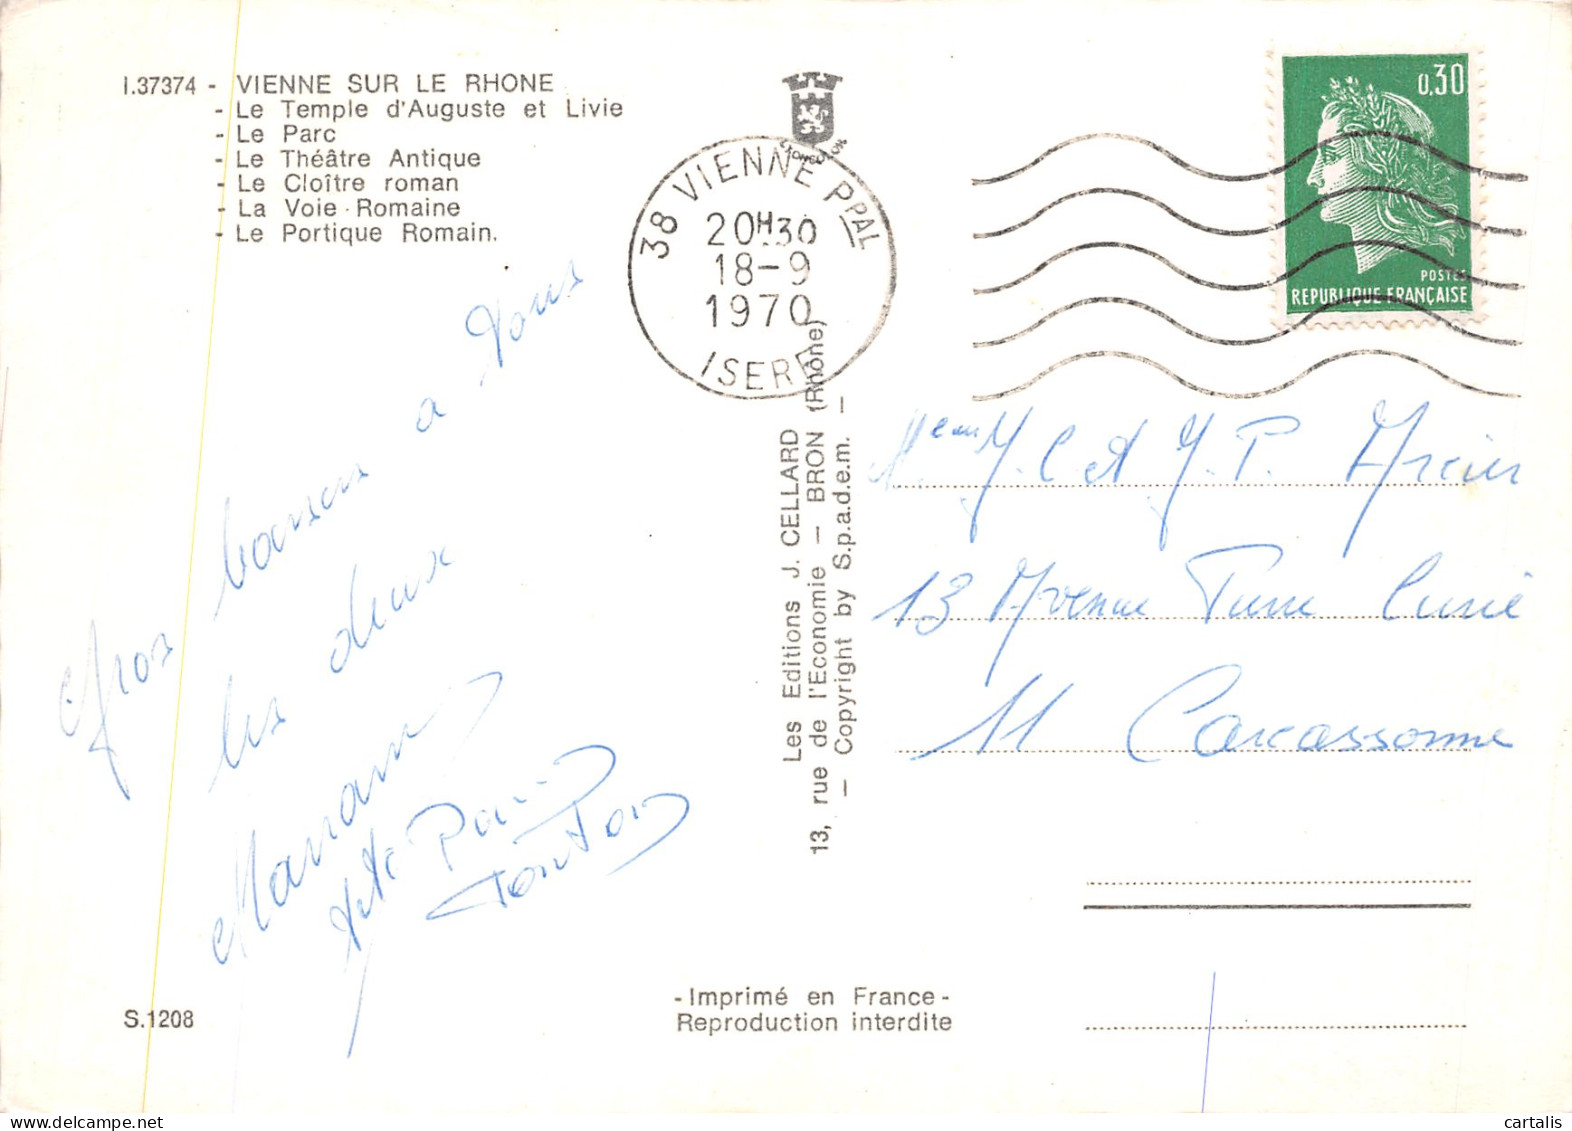 I.37374 - VIENNE SUR LE RHONE
- Le Temple d'Auguste et Livie
- Le Parc
- Le Théâtre Antique
- Le Cloître roman
- La Voie Romaine
- Le Portique Romain.
38 VIENNE PPAL
20H30
18-9
1970
ISERE
0,30
POSTES
REPUBLIQUE FRANÇAISE
Gros baisers a tous
les deux
Maman
Papi
Tonton
J. C et J. P.
13 Avenue Pierre Curie
11 Carcassonne
Les Editions J. CELLARD
13, rue de l'Economie — BRON (Rhône)
— Copyright by S.p.a.d.e.m. —
S.1208
- Imprimé en France -
Reproduction interdite
cartalis